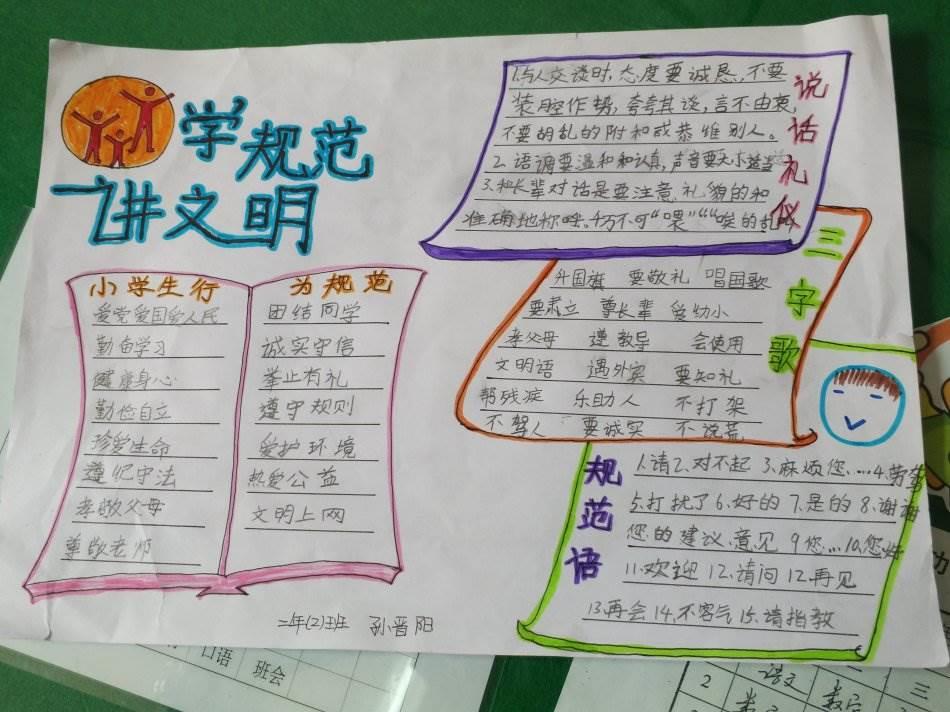 学规范
讲文明
小学生行为规范
爱党爱国爱人民
勤奋学习
健康身心
勤俭自立
珍爱生命
遵纪守法
孝敬父母
尊敬老师
团结同学
诚实守信
举止有礼
遵守规则
爱护环境
热爱公益
文明上网
二年(2)班 孙晋阳
说话礼仪
1.与人交谈时,态度要诚恳,不要
装腔作势,夸夸其谈,言不由衷,
不要胡乱的附和或恭维别人。
2.语调要温和和认真,声音要大小适当
3.和长辈对话是要注意礼貌的和
准确地称呼。千万不可“喂”“唉的乱
三字歌
升国旗 要敬礼 唱国歌
要肃立 尊长辈 爱幼小
孝父母 遵教导 会使用
文明语 遇外宾 要知礼
帮残疾 乐助人 不打架
不骂人 要诚实 不说荒
规范语
1.请2.对不起 3.麻烦您....4.劳驾
5.打扰了6.好的 7.是的 8.谢谢
您的建议、意见 9您...10.您好
11.欢迎 12.请问 12.再见
13.再会 14.不客气 15.请指教
口语 班会
2 语文 数学 三